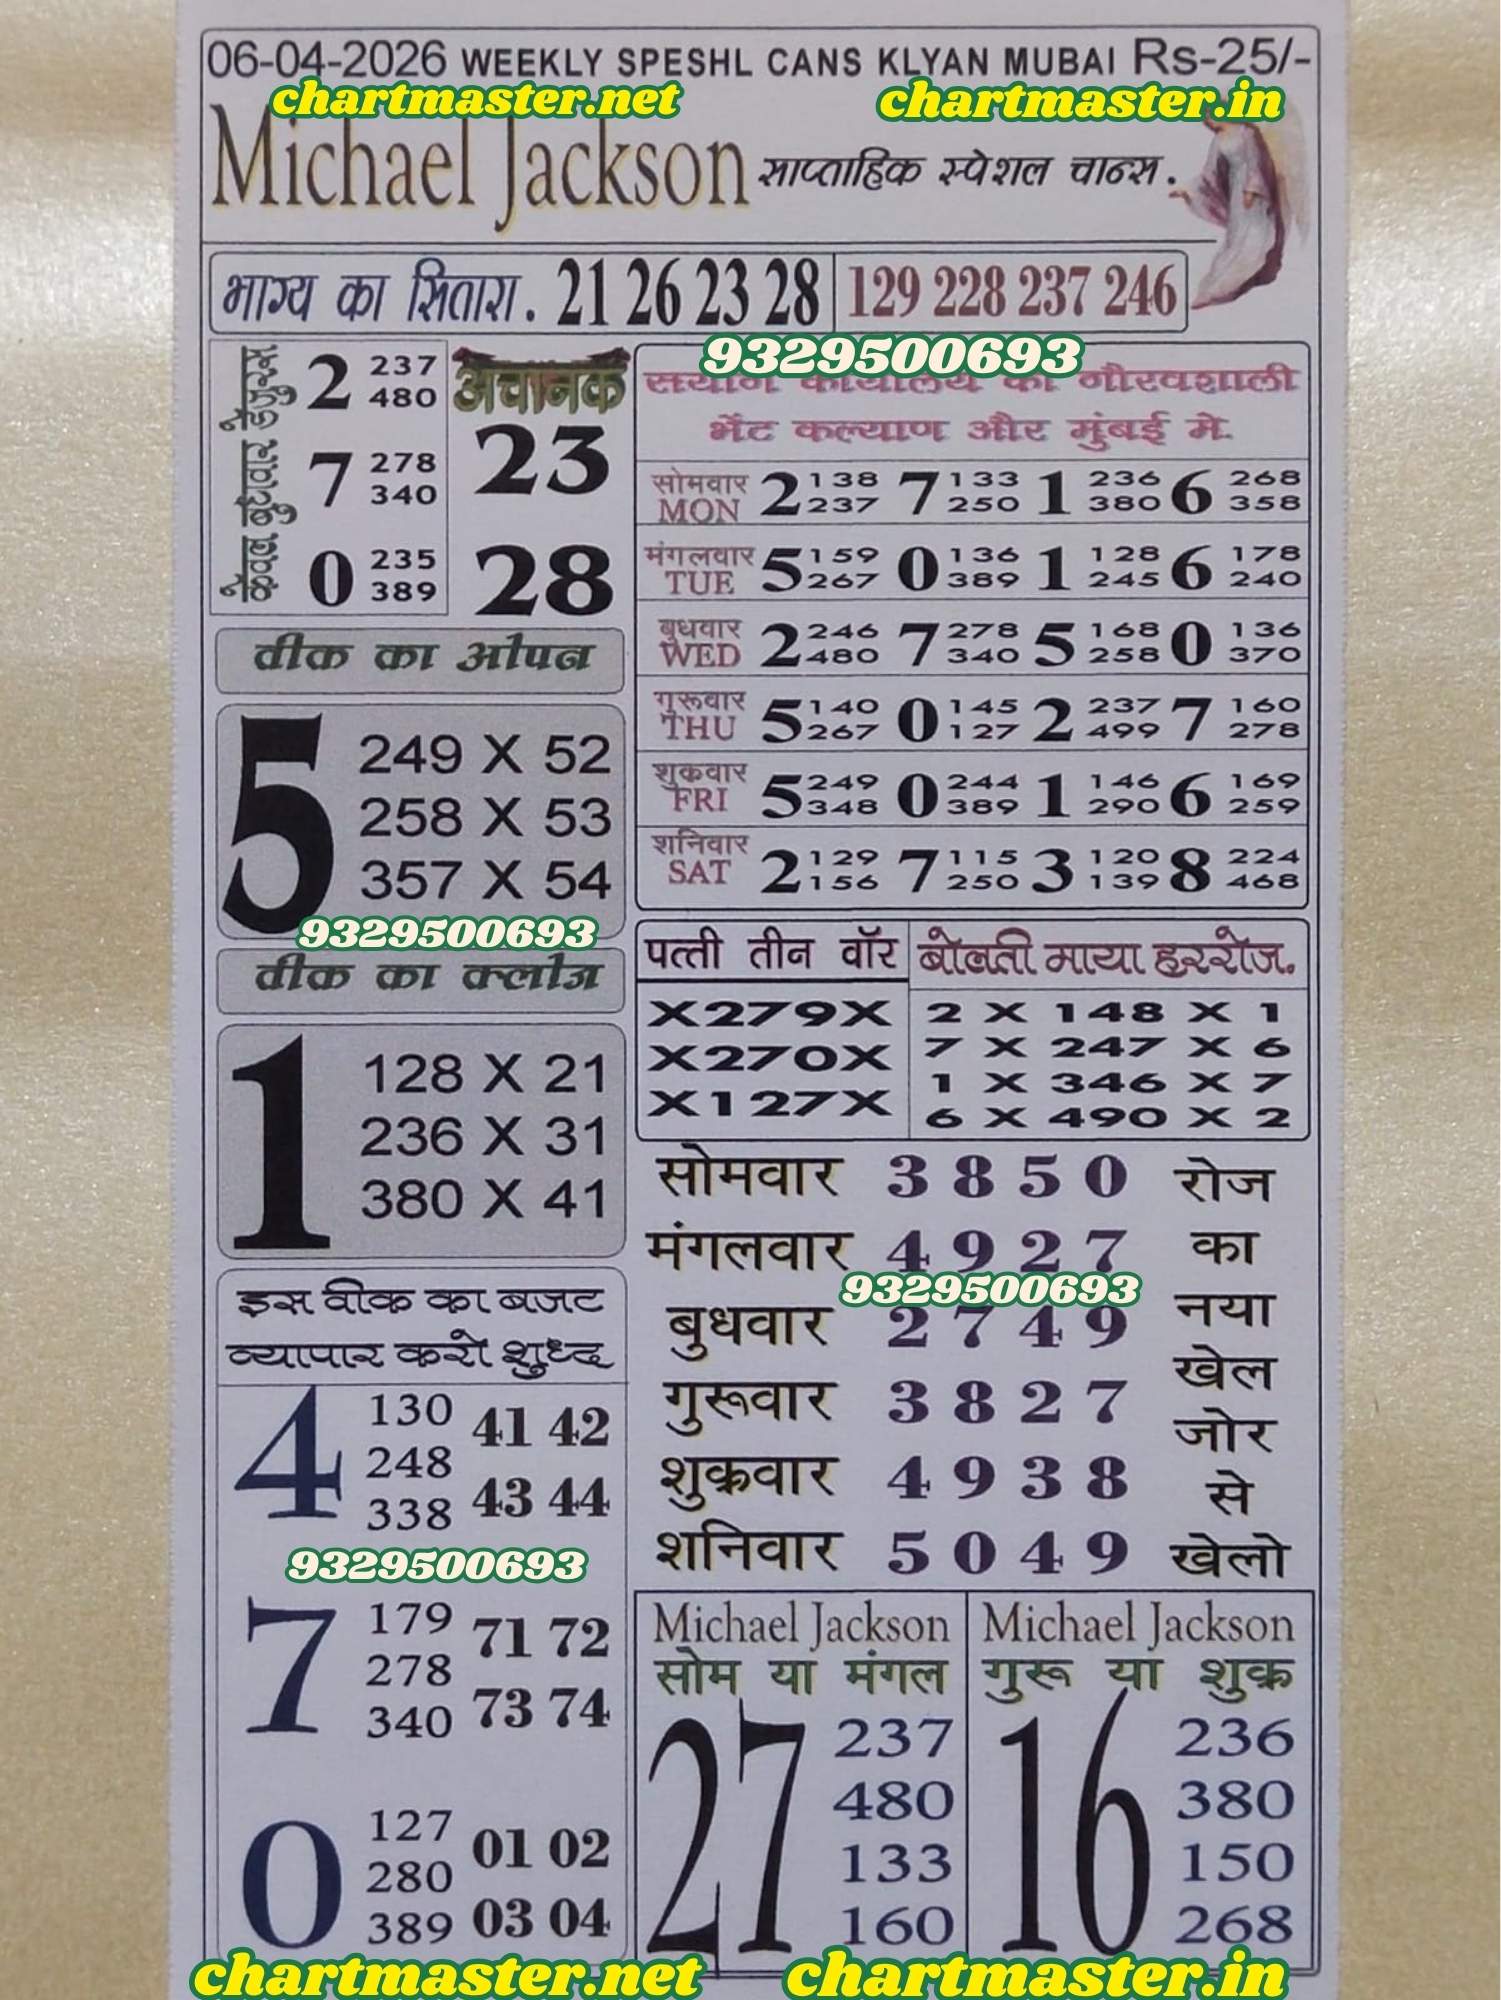 06-04-2026 WEEKLY SPESHL CANS KLYAN MUBAI Rs-25/-
chartmaster.net chartmaster.in
Michael Jackson साप्ताहिक स्पेशल चान्स.
भाग्य का सितारा. 21 26 23 28 129 228 237 246
9329500693
केवल बुधवार हेतुरस
2 237 480
7 278 340
0 235 389
अचानक
23
28
वीक का ओपन
5
249 X 52
258 X 53
357 X 54
9329500693
वीक का क्लोज
1
128 X 21
236 X 31
380 X 41
इस वीक का बजट
व्यापार करो शुध्द
4 130 248 338 41 42 43 44
9329500693
7 179 278 340 71 72 73 74
0 127 280 389 01 02 03 04
सयोग कार्यालय की गौरवशाली
भेंट कल्याण और मुंबई मे.
सोमवार MON 2 138 237 7 133 250 1 236 380 6 268 358
मंगलवार TUE 5 159 267 0 136 389 1 128 245 6 178 240
बुधवार WED 2 246 480 7 278 340 5 168 258 0 136 370
गुरूवार THU 5 140 267 0 145 127 2 237 499 7 160 278
शुक्रवार FRI 5 249 348 0 244 389 1 146 290 6 169 259
शनिवार SAT 2 129 156 7 115 250 3 120 139 8 224 468
पत्ती तीन वॉर
X279X
X270X
X127X
बोलती माया हररोज.
2 X 148 X 1
7 X 247 X 6
1 X 346 X 7
6 X 490 X 2
सोमवार 3 8 5 0
मंगलवार 4 9 2 7
9329500693
बुधवार 2 7 4 9
गुरूवार 3 8 2 7
शुक्रवार 4 9 3 8
शनिवार 5 0 4 9
रोज
का
नया
खेल
जोर
से
खेलो
Michael Jackson
सोम या मंगल
27
237
480
133
160
Michael Jackson
गुरू या शुक्र
16
236
380
150
268
chartmaster.net chartmaster.in